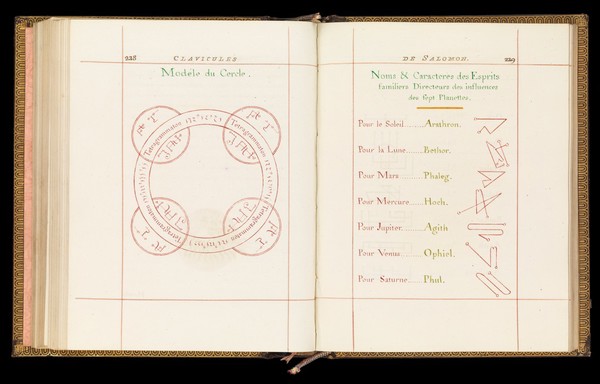 228 CLAVICULES
Modéle du Cercle.
Tetragrammates
Tetragrammates
Tetragrammates
Tetragrammates
DE SALOMON. 229
Noms & Caracteres des Esprits
familiers Directeurs des influences
des sept Planettes.
Pour le Soleil Arathron.
Pour la Lune Bethor.
Pour Mars Phaleg.
Pour Mercure Hoch.
Pour Jupiter Agith
Pour Venus Ophiel.
Pour Saturne Phul.